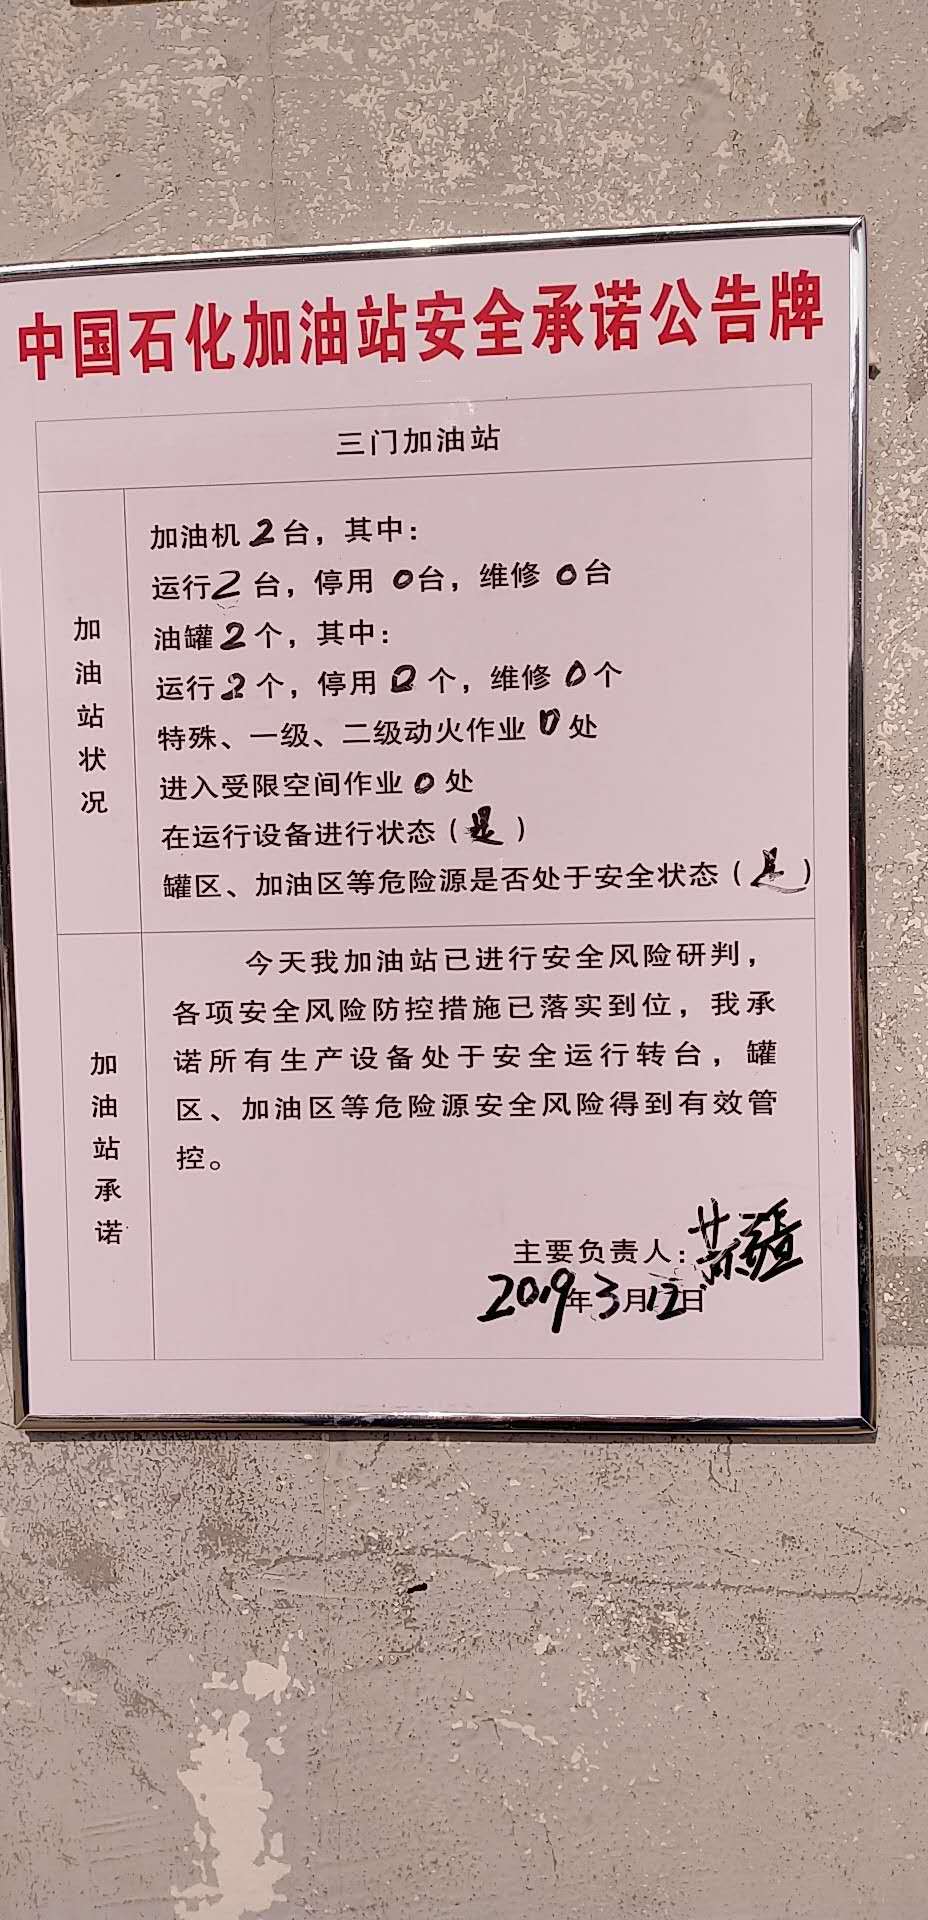 中国石化加油站安全承诺公告牌
三门加油站
加油站状况
加油机2台，其中：
运行2台，停用0台，维修0台
油罐2个，其中：
运行2个，停用0个，维修0个
特殊、一级、二级动火作业0处
进入受限空间作业0处
在运行设备进行状态（是）
罐区、加油区等危险源是否处于安全状态（是）
加油站承诺
今天我加油站已进行安全风险研判，
各项安全风险防控措施已落实到位，我承
诺所有生产设备处于安全运行转台，罐
区、加油区等危险源安全风险得到有效管
控。
主要负责人：
2019年3月12日